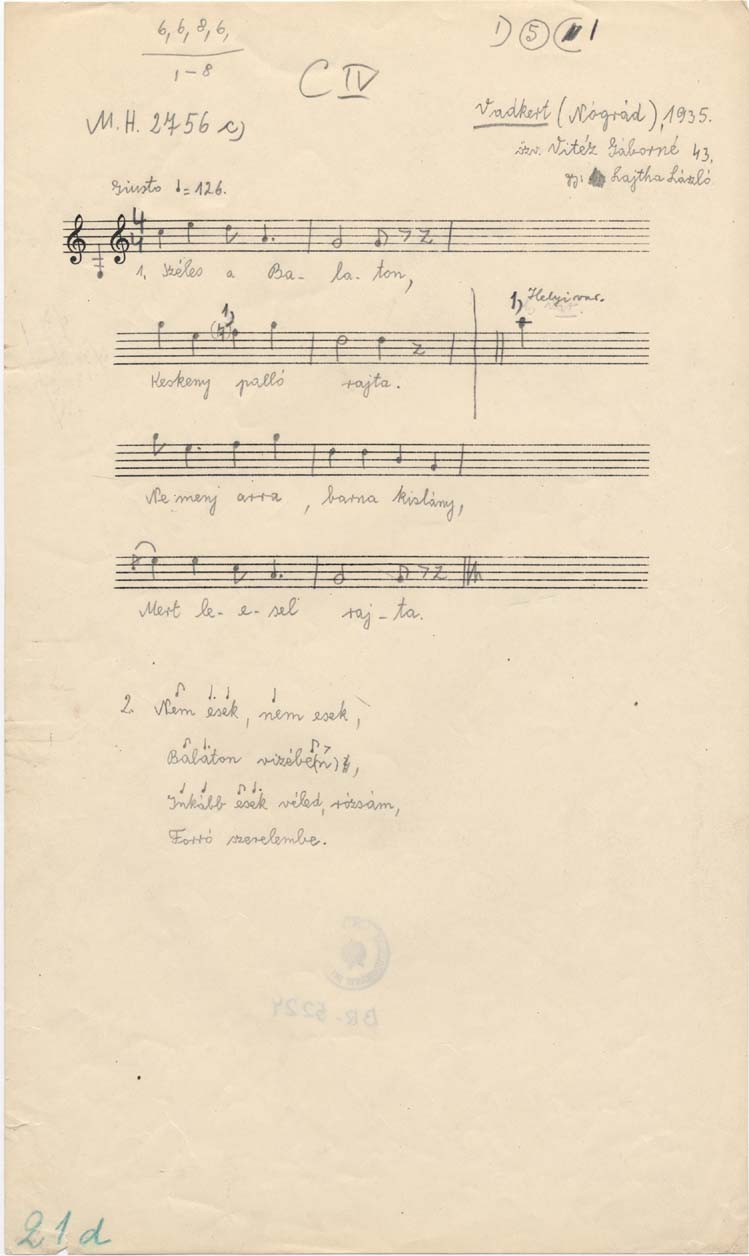 6, 6, 8, 6,
1-8
1) 5 1
C IV
M. H. 2756 c)
Vadkert (Nógrád), 1935.
özv. Vitéz Gáborné 43,
gy: Lajtha László
Giusto ♩= 126.
4
4
1. Széles a Ba- la- ton,
1) Helyi var.
1)
Keskeny palló rajta.
Ne menj arra, barna kislány,
Mert le- e- sel raj- ta.
2. Nem esek, nem esek,
Balaton vizébe(n),
Inkább esek véled, rózsám,
Forró szerelembe.
BR. 5224
21d